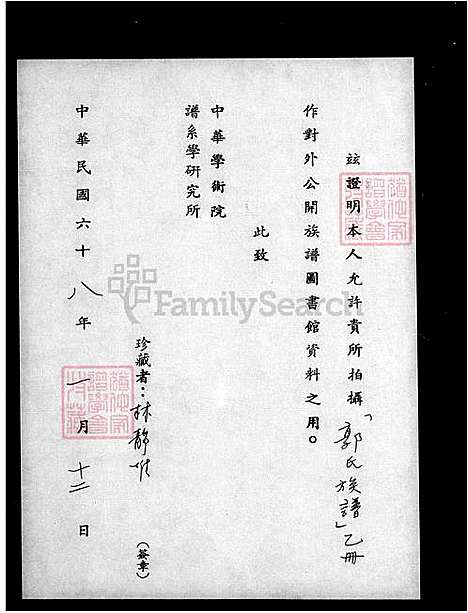 玆證明本人允許貴所拍攝「郭氏族譜」乙冊
作對外公開族譜圖書館資料之用。
此致
中華學術院
譜系學研究所
珍藏者：林靜
（簽章）
中華民國六十八年一月十二日
FamilySearch